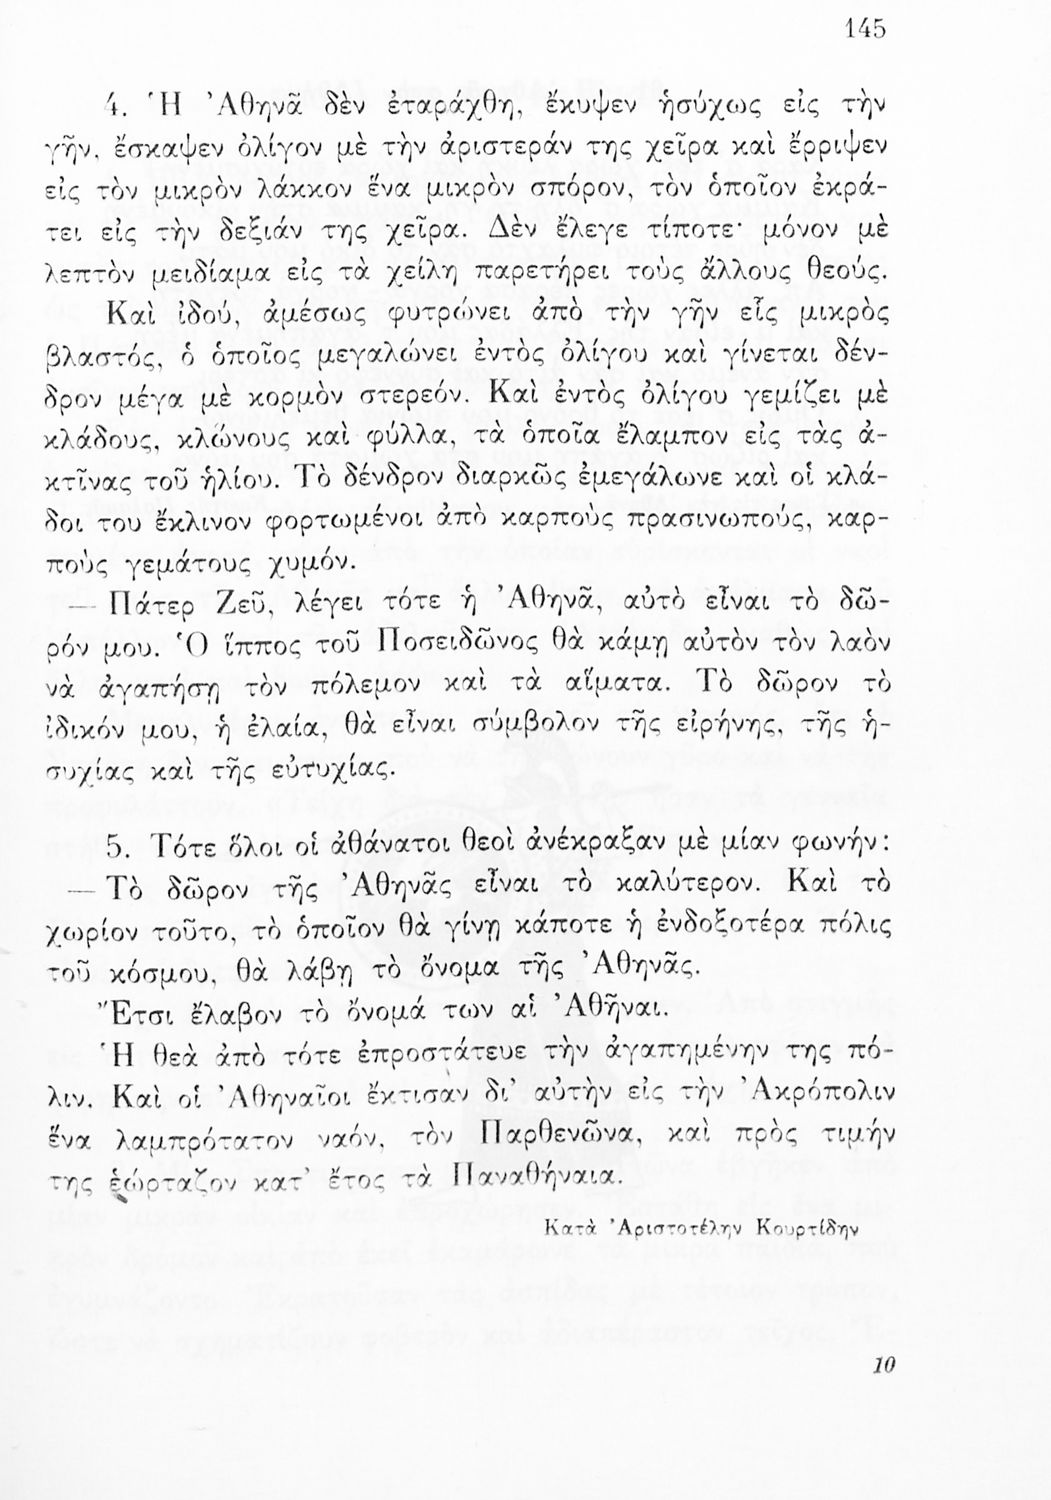 145
4. Ἡ Ἀθηνᾶ δὲν ἐταράχθη, ἔκυψεν ἡσύχως εἰς τὴν
γῆν, ἔσκαψεν ὀλίγον μὲ τὴν ἀριστεράν της χεῖρα καὶ ἔρριψεν
εἰς τὸν μικρὸν λάκκον ἕνα μικρὸν σπόρον, τὸν ὁποῖον ἐκρά-
τει εἰς τὴν δεξιάν της χεῖρα. Δὲν ἔλεγε τίποτε· μόνον μὲ
λεπτὸν μειδίαμα εἰς τὰ χείλη παρετήρει τοὺς ἄλλους θεούς.
Καὶ ἰδού, ἀμέσως φυτρώνει ἀπὸ τὴν γῆν εἷς μικρὸς
βλαστός, ὁ ὁποῖος μεγαλώνει ἐντὸς ὀλίγου καὶ γίνεται δέν-
δρον μέγα μὲ κορμὸν στερεόν. Καὶ ἐντὸς ὀλίγου γεμίζει μὲ
κλάδους, κλώνους καὶ φύλλα, τὰ ὁποῖα ἔλαμπον εἰς τὰς ἀ-
κτῖνας τοῦ ἡλίου. Τὸ δένδρον διαρκῶς ἐμεγάλωνε καὶ οἱ κλά-
δοι του ἔκλινον φορτωμένοι ἀπὸ καρποὺς πρασινωπούς, καρ-
ποὺς γεμάτους χυμόν.
— Πάτερ Ζεῦ, λέγει τότε ἡ Ἀθηνᾶ, αὐτὸ εἶναι τὸ δῶ-
ρόν μου. Ὁ ἵππος τοῦ Ποσειδῶνος θὰ κάμῃ αὐτὸν τὸν λαὸν
νὰ ἀγαπήσῃ τὸν πόλεμον καὶ τὰ αἵματα. Τὸ δῶρον τὸ
ἰδικόν μου, ἡ ἐλαία, θὰ εἶναι σύμβολον τῆς εἰρήνης, τῆς ἡ-
συχίας καὶ τῆς εὐτυχίας.
5. Τότε ὅλοι οἱ ἀθάνατοι θεοὶ ἀνέκραξαν μὲ μίαν φωνήν:
— Τὸ δῶρον τῆς Ἀθηνᾶς εἶναι τὸ καλύτερον. Καὶ τὸ
χωρίον τοῦτο, τὸ ὁποῖον θὰ γίνῃ κάποτε ἡ ἐνδοξοτέρα πόλις
τοῦ κόσμου, θὰ λάβῃ τὸ ὄνομα τῆς Ἀθηνᾶς.
Ἔτσι ἔλαβον τὸ ὄνομά των αἱ Ἀθῆναι.
Ἡ θεὰ ἀπὸ τότε ἐπροστάτευε τὴν ἀγαπημένην της πό-
λιν. Καὶ οἱ Ἀθηναῖοι ἔκτισαν δι' αὐτὴν εἰς τὴν Ἀκρόπολιν
ἕνα λαμπρότατον ναόν, τὸν Παρθενῶνα, καὶ πρὸς τιμήν
της ἑώρταζον κατ' ἔτος τὰ Παναθήναια.
Κατὰ Ἀριστοτέλην Κουρτίδην
10